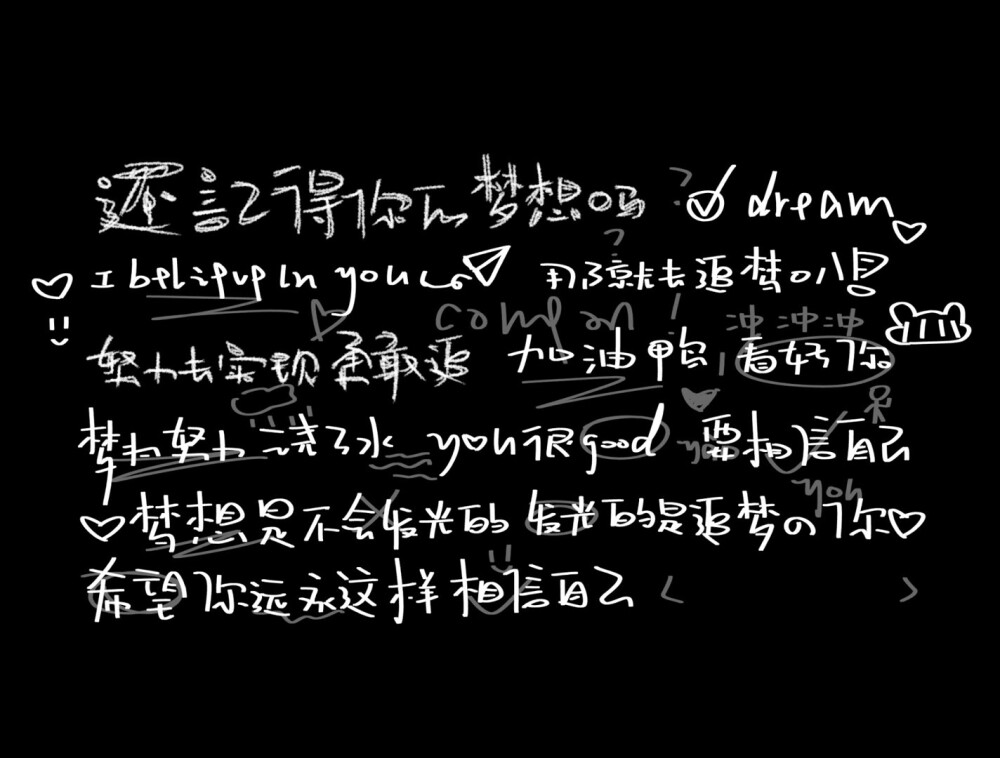 還記得你的梦想吗? dream
I believe in you 那就去追梦吧!
come on! 冲冲冲
努力去实现勇敢追 加油鸭 看好你
梦为努力浇了水 you很good 要相信自己
you
梦想是不会发光的 发光的是追梦の你
希望你远永这样相信自己